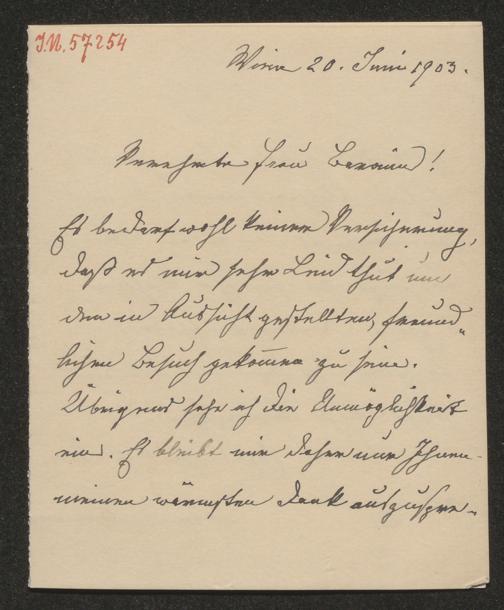 I.N. 57254
Wien 20. Juni 1903.
Verehrte Frau Baronin!
Es bedarf wohl keiner Versicherung,
daß es mir sehr Leid thut um
den in Aussicht gestellten, freund-
lichen Besuch gekommen zu sein.
Übrigens sehe ich die Unmöglichkeit
ein. Es bleibt mir daher nur Ihnen
meinen wärmsten Dank auszuspre-